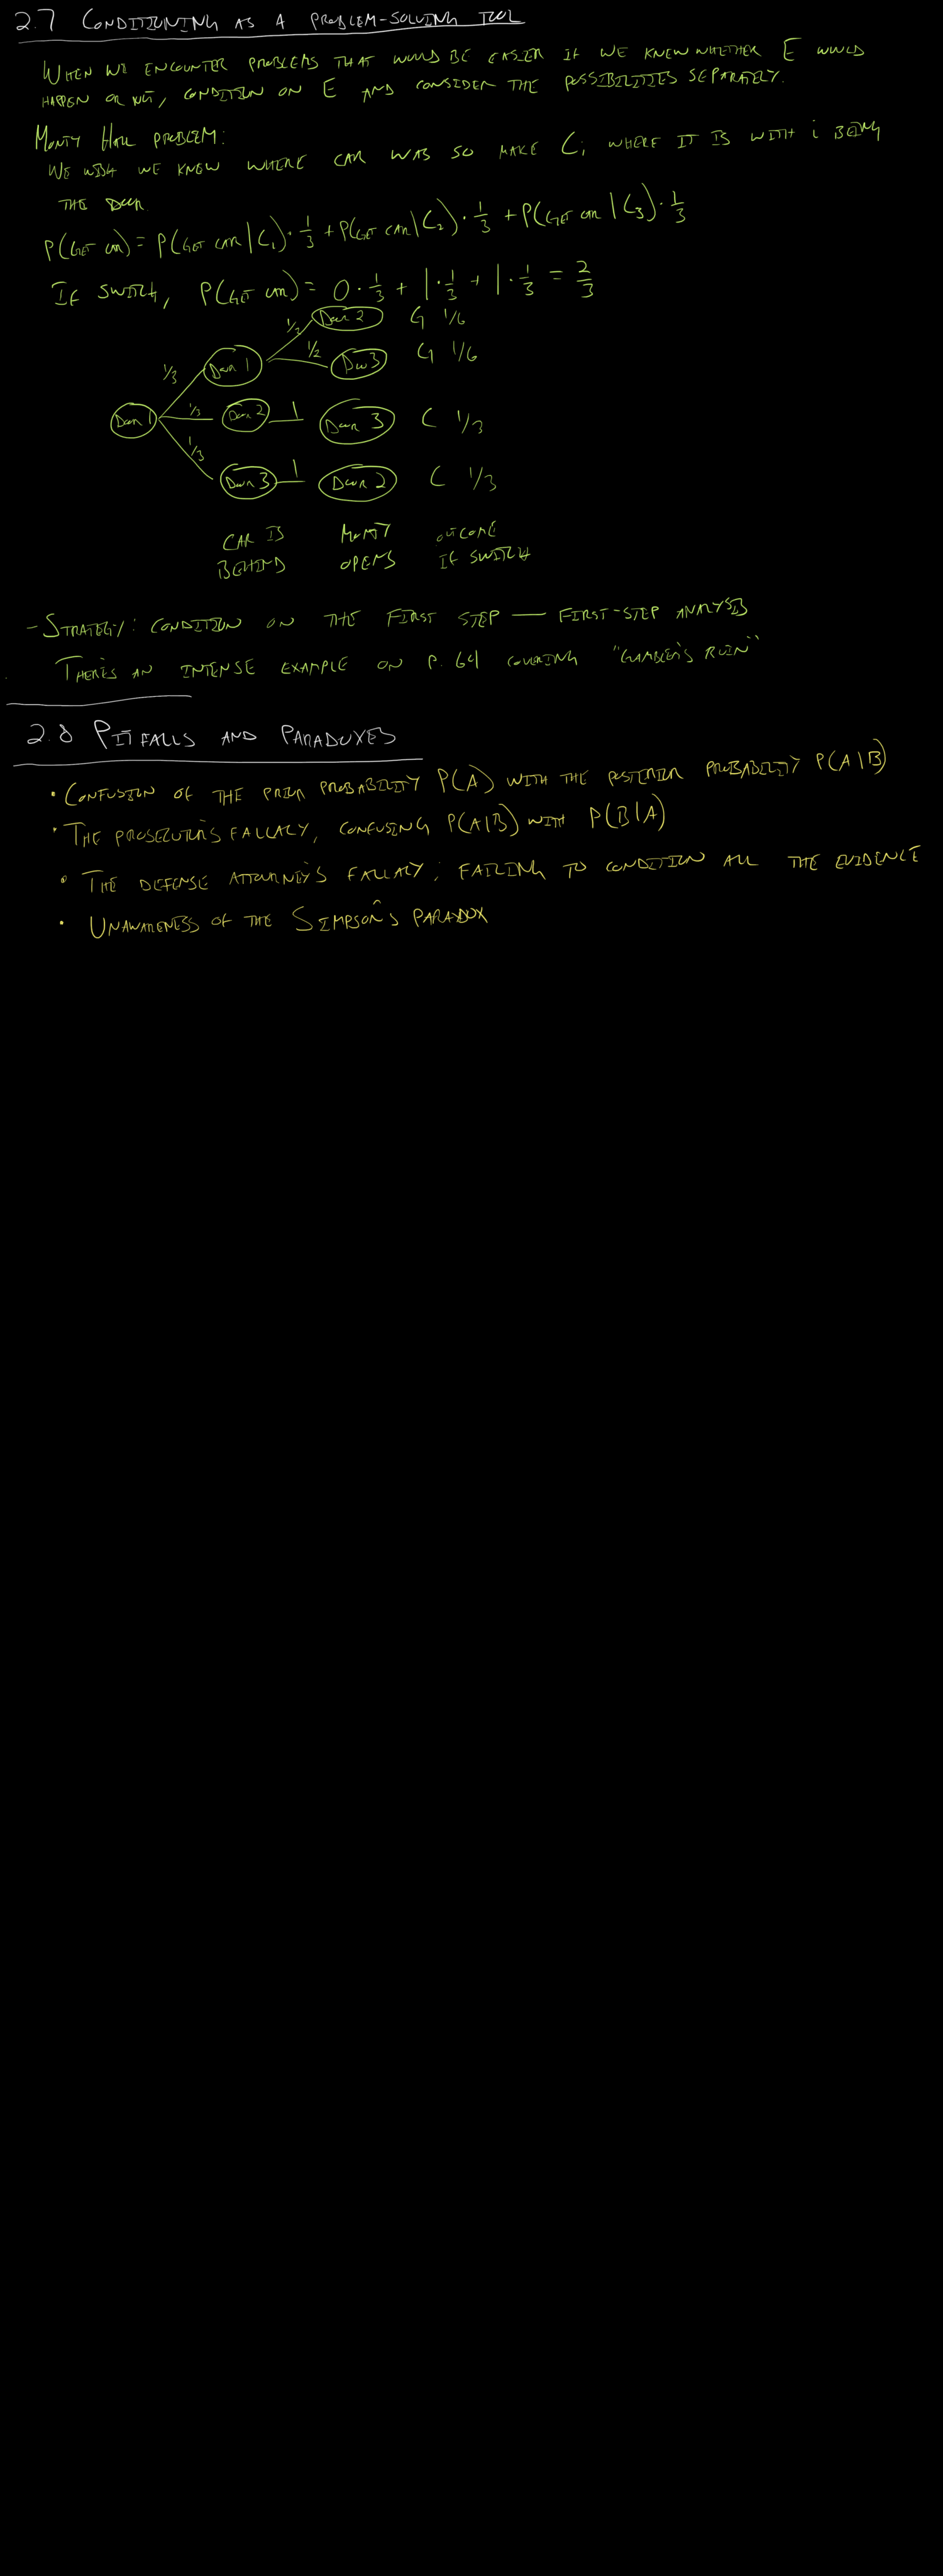 2.7 CONDITIONING AS A PROBLEM-SOLVING TOOL
WHEN WE ENCOUNTER PROBLEMS THAT WOULD BE EASIER IF WE KNEW WHETHER E WOULD
HAPPEN OR NOT, CONDITION ON E AND CONSIDER THE POSSIBILITIES SEPARATELY.
MONTY HALL PROBLEM:
WE WISH WE KNEW WHERE CAR WAS SO MAKE Cᵢ WHERE IT IS WITH i BEING
THE DOOR
P(GET CAR) = P(GET CAR | C₁) · 1/3 + P(GET CAR | C₂) · 1/3 + P(GET CAR | C₃) · 1/3
IF SWITCH, P(GET CAR) = 0 · 1/3 + 1 · 1/3 + 1 · 1/3 = 2/3
1/2 DOOR 2 G 1/6
1/3 DOOR 1 1/2 DOOR 3 G 1/6
DOOR 1 1/3 DOOR 2 1 DOOR 3 C 1/3
1/3 DOOR 3 1 DOOR 2 C 1/3
CAR IS MONTY OUTCOME
BEHIND OPENS IF SWITCH
- STRATEGY: CONDITION ON THE FIRST STEP — FIRST-STEP ANALYSIS
THERE'S AN INTENSE EXAMPLE ON P. 64 COVERING "GAMBLER'S RUIN"
2.8 PITFALLS AND PARADOXES
• CONFUSION OF THE PRIOR PROBABILITY P(A) WITH THE POSTERIOR PROBABILITY P(A|B)
• THE PROSECUTOR'S FALLACY, CONFUSING P(A|B) WITH P(B|A)
• THE DEFENSE ATTORNEY'S FALLACY; FAILING TO CONDITION ALL THE EVIDENCE
• UNAWARENESS OF THE SIMPSON'S PARADOX